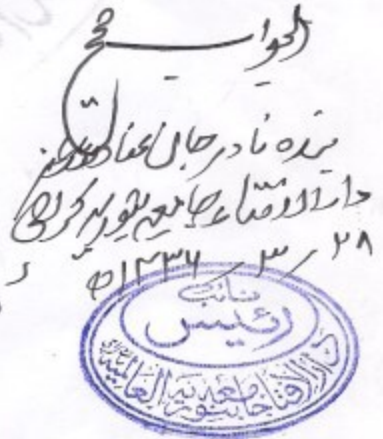 الجواب صحیح
بندہ نادر جان عفا اللہ عنہ
دار الافتاء جامعہ بنوریہ کراچی
۲۸/۳/۱۴۳۶ھ
نائب
رئیس
دار الافتاء جامعہ بنوریہ العالمیہ